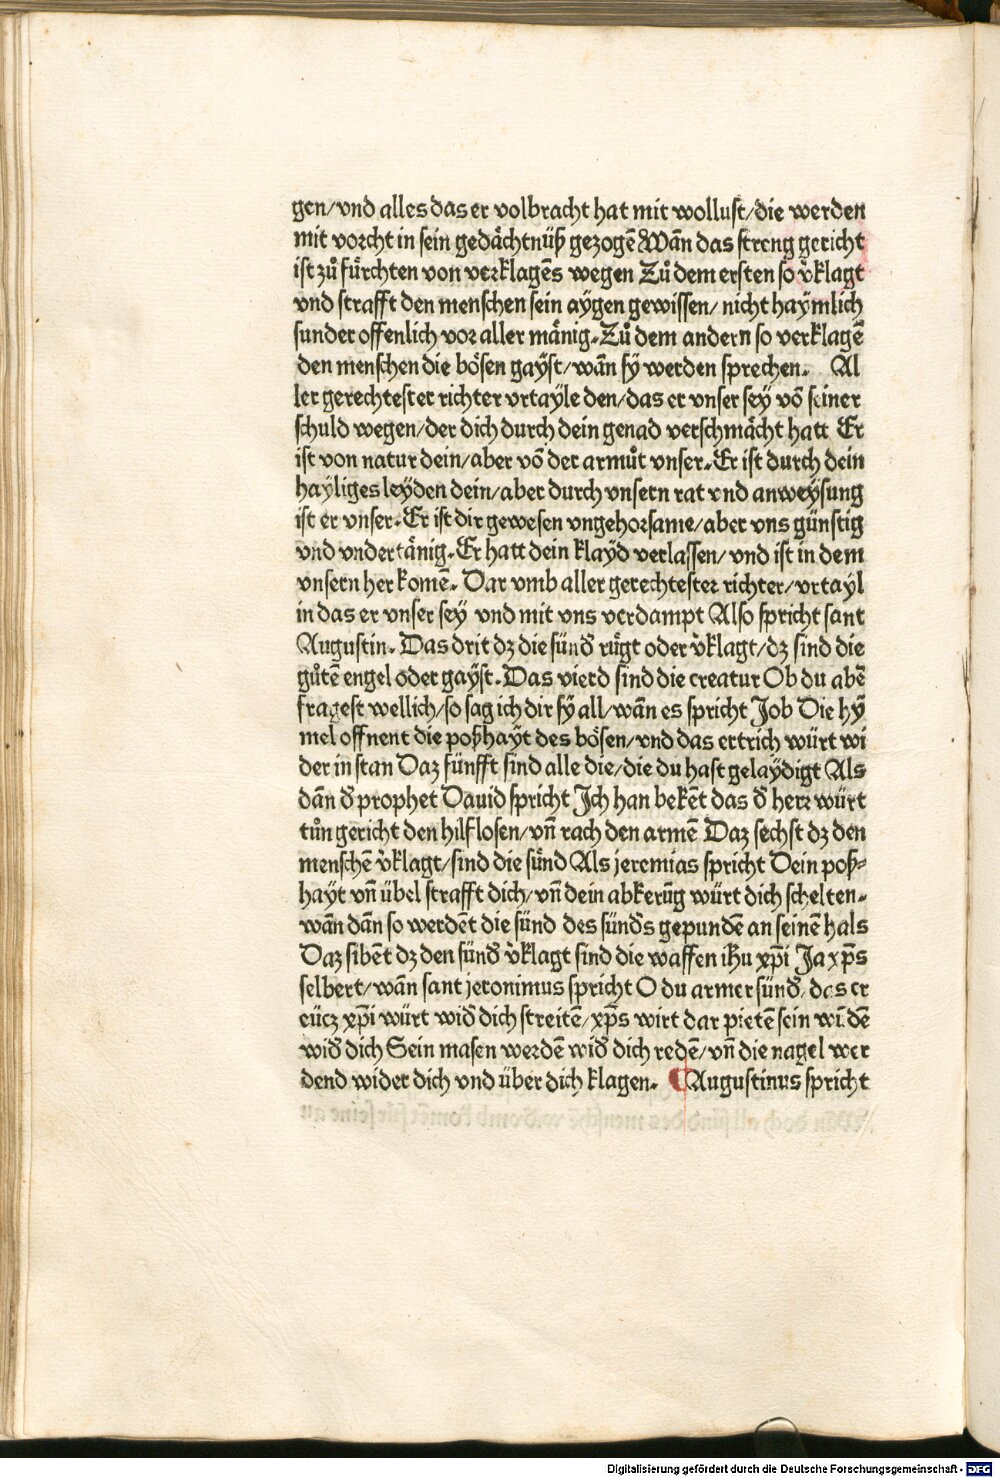 gen/vnd alles das er volbracht hat mit wollust/die werden
mit vorcht in sein gedaͤchtnuͤß gezogē Wān das streng gericht
ist zuͦ fuͤrchten von verklagēs wegen Zuͦ dem ersten so v̓klagt
vnd strafft den menschen sein aygen gewissen/ nicht haymlich
sunder offenlich vor aller maͤnig. Zuͦ dem andern so verklagē
den menschen die boͤsen gaÿst/wān sÿ werden sprechen. Al
ler gerechtester richter vrtayle den/das er vnser sey vō seiner
schuld wegen/der dich durch dein genad verschmaͤcht hatt Er
ist von natur dein/aber vō der armuͦt vnser. Er ist durch dein
hayliges leÿden dein/aber durch vnsern rat vnd anweÿsung
ist er vnser. Er ist dir gewesen vngehorsame/aber vns günstig
vnd vndertänig. Er hatt dein klayd verlassen/vnd ist in dem
vnsern her komē. Dar vmb aller gerechtester richter/vrtayl
in das er vnser seÿ vnd mit vns verdampt Also spricht sant
Augustin. Das drit dz die sünd̓ ruͤgt oder v̓klagt/dz sind die
guͦtē engel oder gaÿst. Das vierd sind die creatur Ob du abē
fragest wellich/so sag ich dir sÿ all/wān es spricht Job Die hÿ
mel offnent die poßhaÿt des boͤsen/vnd das ertrich würt wi
der in stan Daz fünfft sind alle die/die du hast gelaÿdigt Als
dān d̓ prophet Dauid spricht Ich han bekēt das d̓ herr würt
tuͦn gericht den hilflosen/vn̄ rach den armē Daz sechst dz den
menschē v̓klagt/sind die sünd Als jeremias spricht Dein poß-
hayt vn̄ übel strafft dich/vn̄ dein abkerūg würt dich schelten.
wān dān so werdēt die sünd des sünd̓s gepundē an seinē hals
Daz sibēt dz den sünd̓ v̓klagt sind die waffen ihu xp̄i Ja xp̄s
selbert/wān sant jeronimus spricht O du armer sünd̓/ das cr
eücz xp̄i würt wid̓ dich streitē/xp̄s wirt dar pietē sein wūdē
wid̓ dich Sein masen werdē wid̓ dich redē/vn̄ die nagel wer
dend wider dich vnd über dich klagen. ¶Augustinus spricht
Digitalisierung gefördert durch die Deutsche Forschungsgemeinschaft - DFG